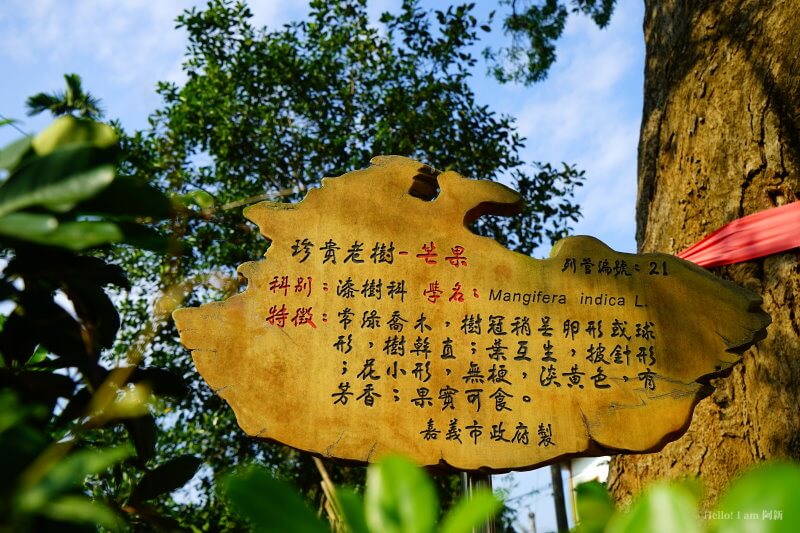 珍貴老樹-芒果
列管編號：21
科別：漆樹科 學名：Mangifera indica L.
特徵：常綠喬木，樹冠稍呈卵形或球
形，樹幹直；葉互生，披針形
；花小形，無梗，淡黃色，有
芳香；果實可食。
嘉義市政府製
Hello! I am 阿新